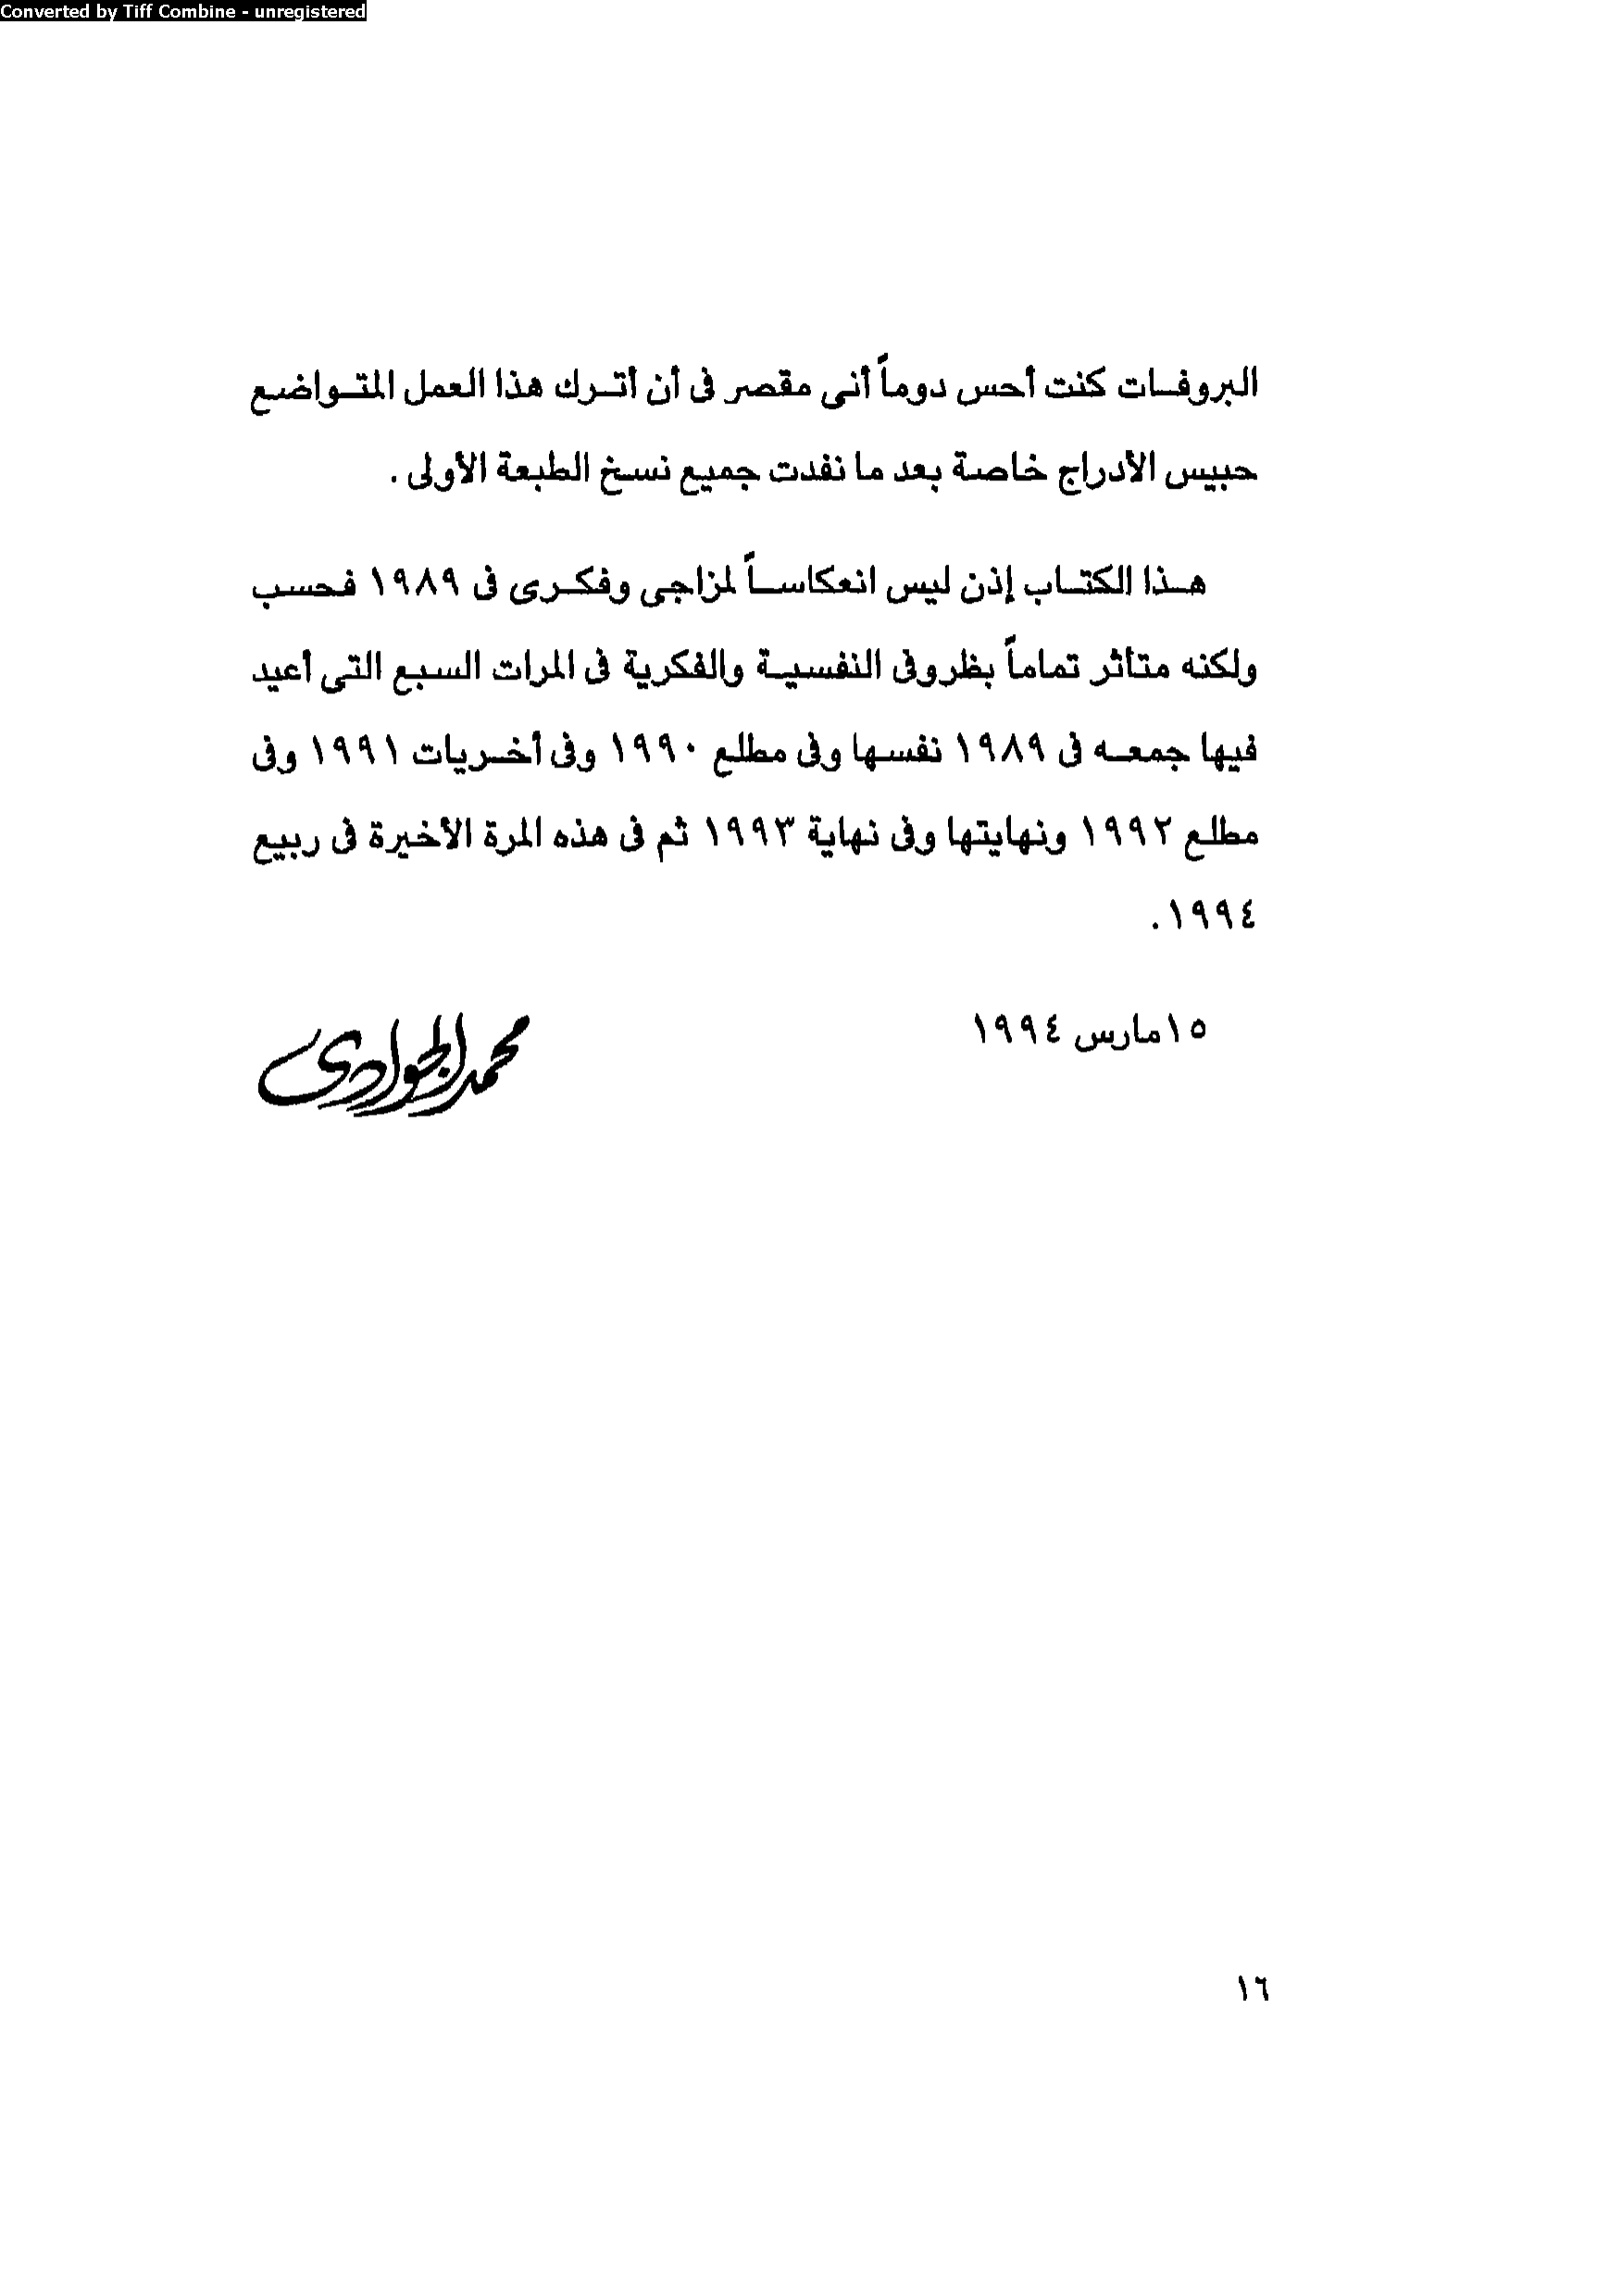 Converted by Tiff Combine - unregistered
البروفات كنت أحس دوماً أنى مقصر فى أن أترك هذا العمل المتواضع
حبيس الأدراج خاصة بعد ما نفدت جميع نسخ الطبعة الأولى .
هذا الكتاب إذن ليس انعكاساً لمزاجى وفكرى فى ١٩٨٩ فحسب
ولكنه متأثر تماماً بظروفى النفسية والفكرية فى المرات السبع التى أعيد
فيها جمعه فى ١٩٨٩ نفسها وفى مطلع ١٩٩٠ وفى أخريات ١٩٩١ وفى
مطلع ١٩٩٢ ونهايتها وفى نهاية ١٩٩٣ ثم فى هذه المرة الأخيرة فى ربيع
١٩٩٤.
١٥ مارس ١٩٩٤
محمد الجوادى
١٦